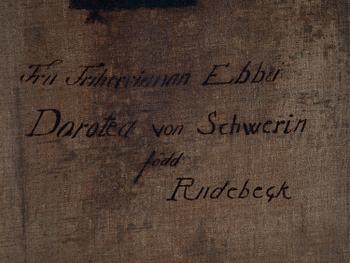 Fru Friherrinnan Ebba
Darotea von Schwerin
född
Rudebeck